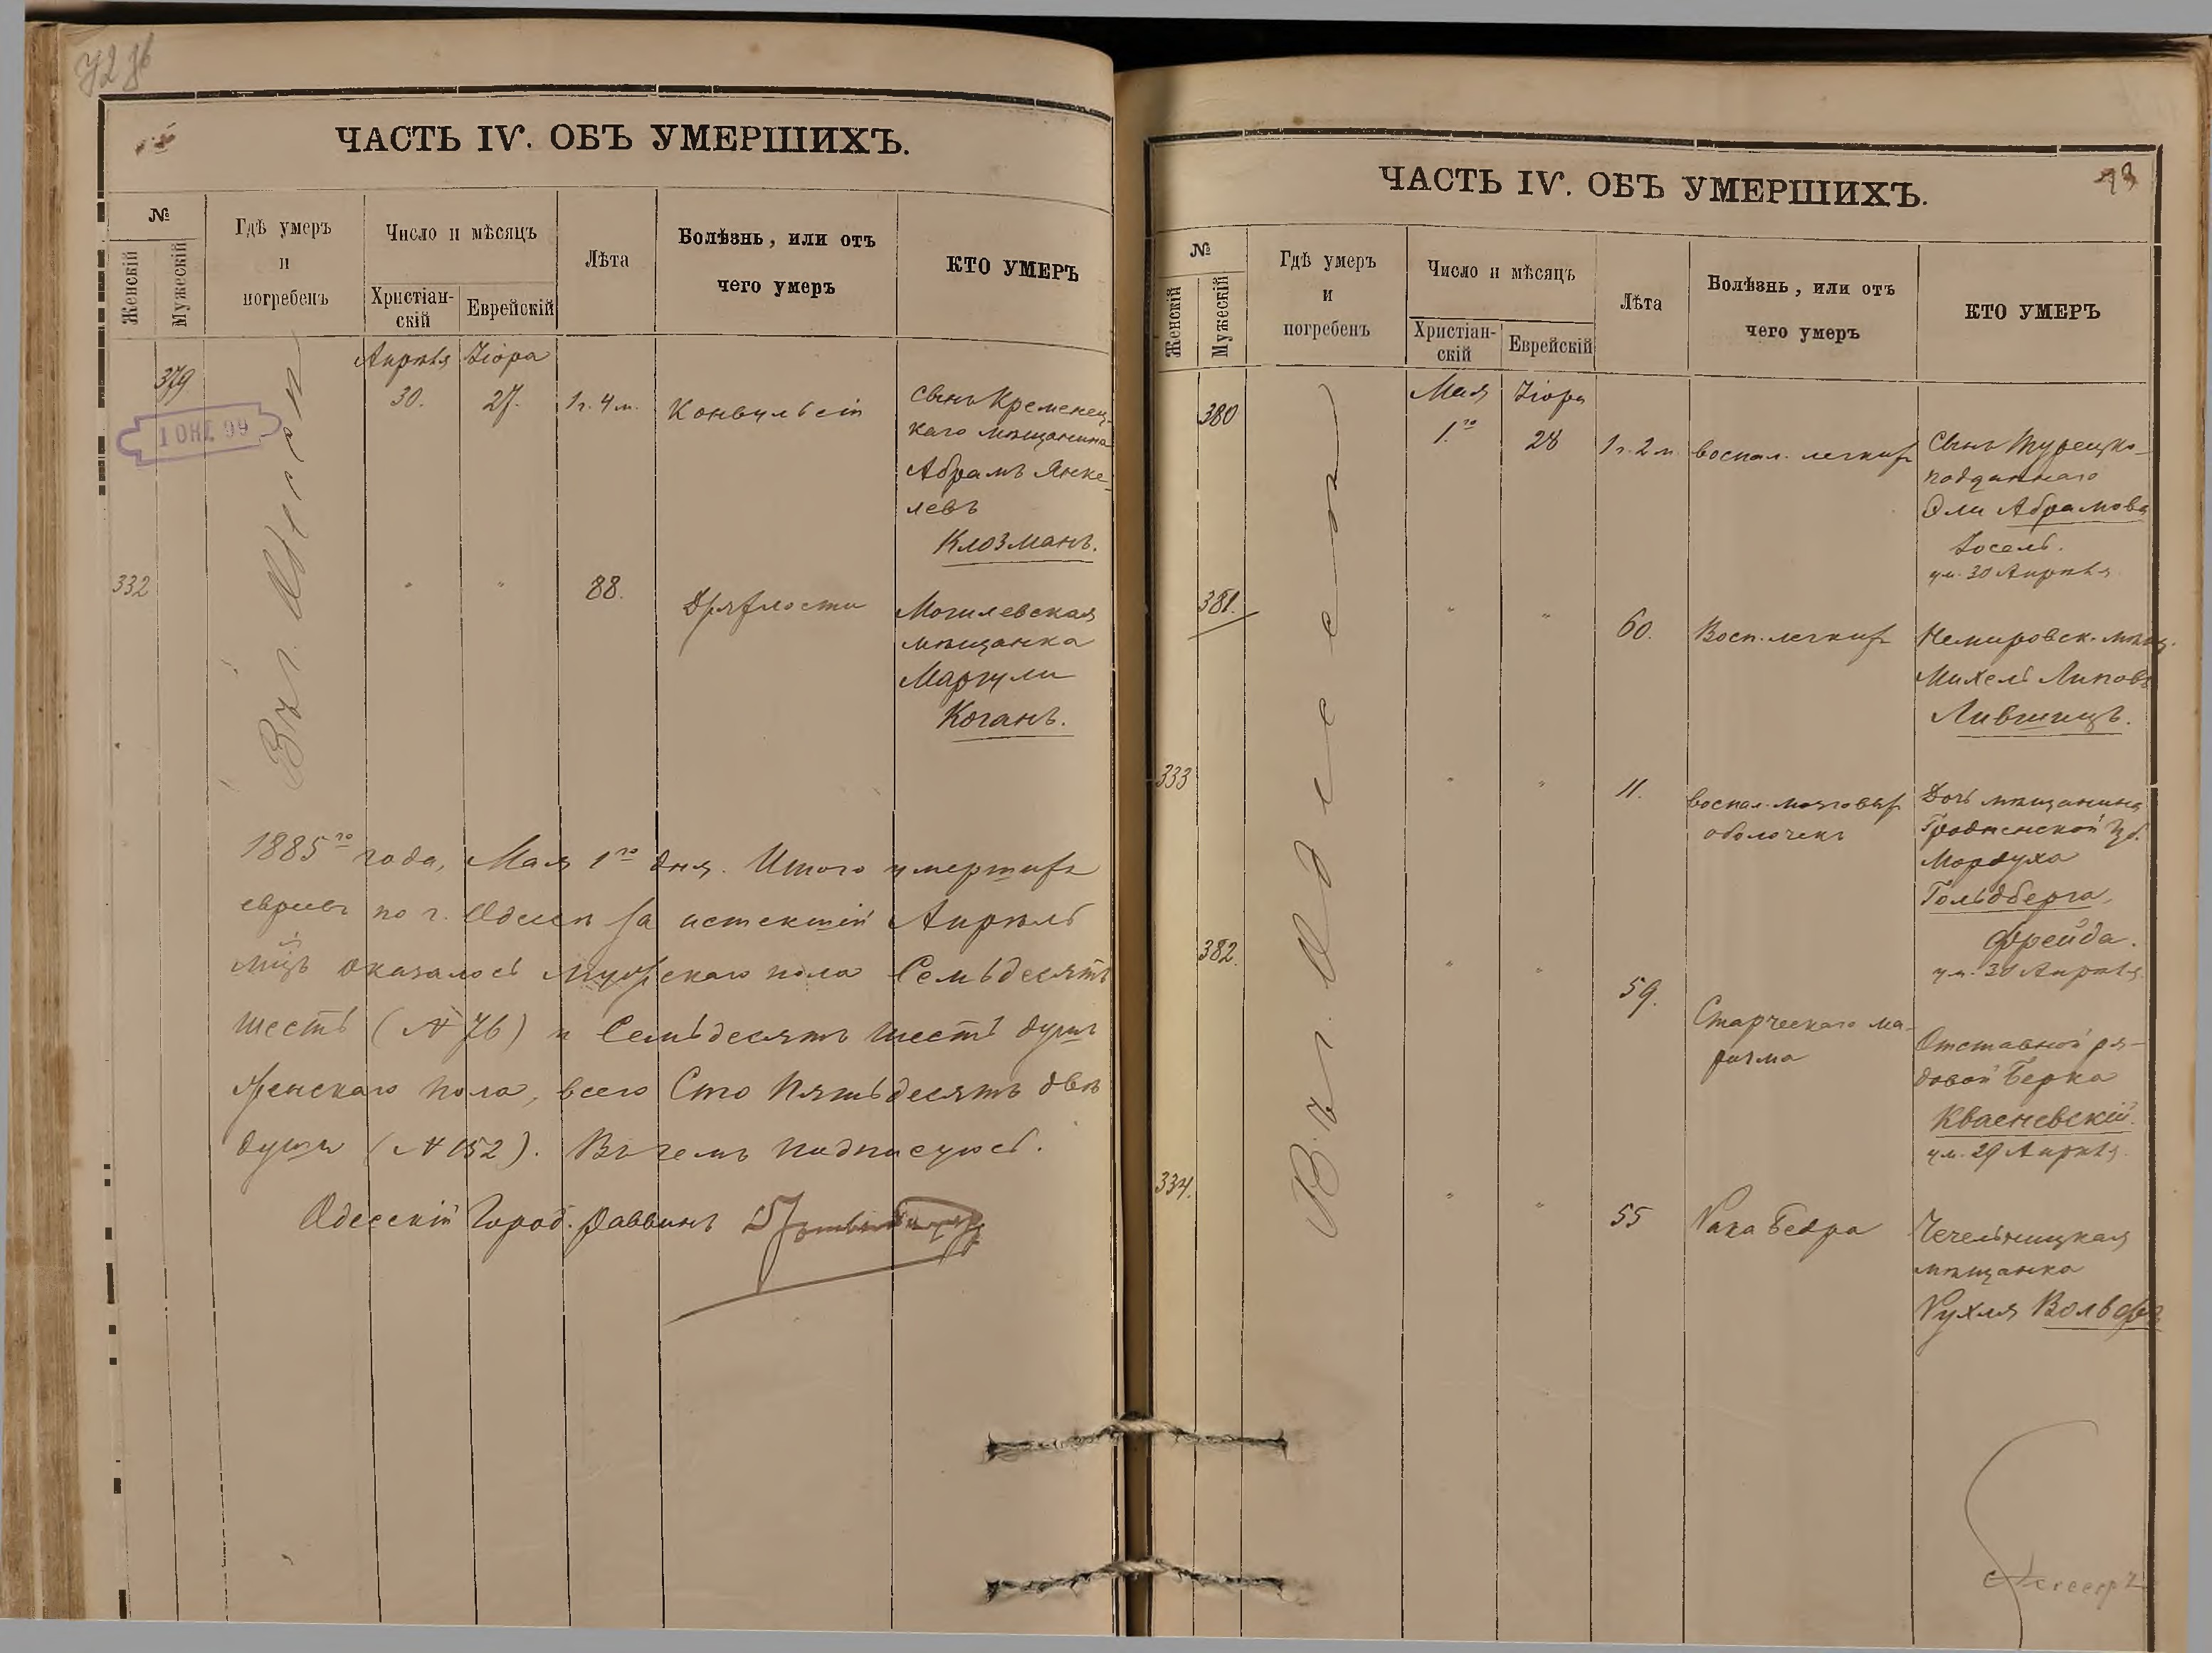 72 об
ЧАСТЬ IV. ОБЪ УМЕРШИХЪ.
№
Женскій
Мужескій
Гдѣ умеръ
и
погребенъ
Число и мѣсяцъ
Христіан-
скій
Еврейскій
Лѣта
Болѣзнь, или отъ
чего умеръ
КТО УМЕРЪ
Апрѣля Іюра
379 30. 27. 1 г. 4 м. Конвульсіи
Сынъ Кременец-
каго мѣщанина
Абрамъ Янке-
левъ
Клозманъ.
1 ОКТ. 99
Въ г. Одессѣ
332 " " 88. Дряхлости
Могилевская
мѣщанка
Маргули
Коганъ.
1885го года, Мая 1го дня. Итого умершихъ
евреевъ по г. Одессѣ за истекшій Апрѣль
мцъ оказалось мужескаго пола Семьдесятъ
шесть (№ 76) и Семьдесятъ шесть душъ
женскаго пола, всего Сто пятьдесятъ двѣ
души (№ 152). Въ чемъ подписуюсь.
Одесскій Город. Раввинъ
ЧАСТЬ IV. ОБЪ УМЕРШИХЪ.
73
№
Женскій
Мужескій
Гдѣ умеръ
и
погребенъ
Число и мѣсяцъ
Христіан-
скій
Еврейскій
Лѣта
Болѣзнь, или отъ
чего умеръ
КТО УМЕРЪ
Мая Іюра
380 1.го 28 1 г. 2 м. воспал. легкихъ
Сынъ Турецко-
подданнаго
Эли Абрамова
Іосель.
ум. 30 Апрѣля
Въ г. Одессѣ
381. " " 60. Восп. легкихъ
Немировск. мѣщ.
Михель Липовъ
Лившицъ.
333 " " 11. воспал. мозговыхъ
оболочекъ
Дочь мѣщанина
Гродненской Губ.
Мордуха
Гольдберга,
Фрейда.
ум. 30 Апрѣля
382. " " 59. Старческаго ма-
разма
Отставной ря-
довой Берка
Квасневскій.
ум. 29 Апрѣля
334. " " 55 Рака бедра
Чечельницкая
мѣщанка
Рухля Вольфъ